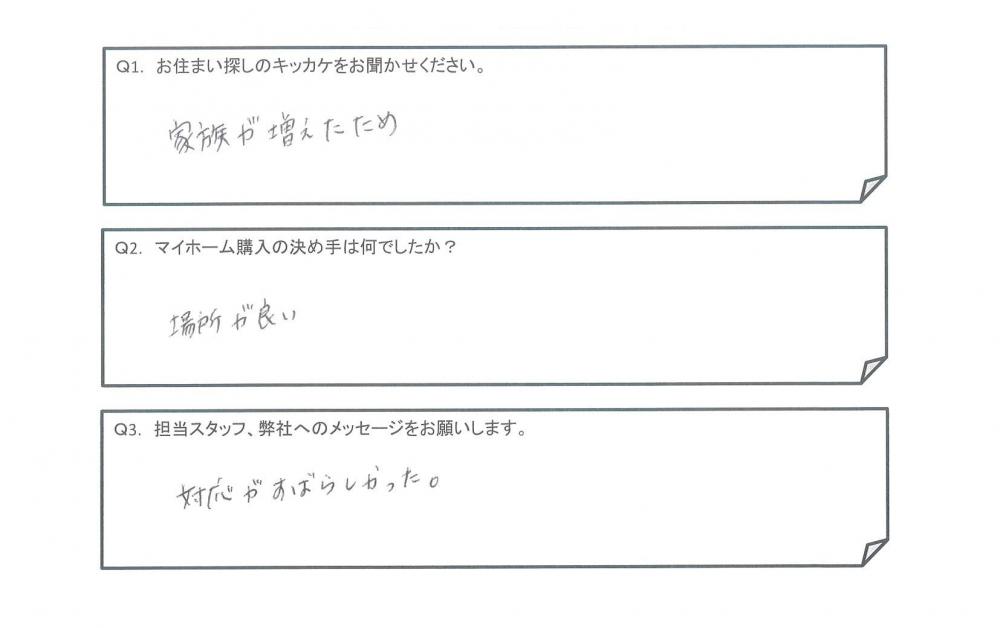 Q1. お住まい探しのキッカケをお聞かせください。
家族が増えたため
Q2. マイホーム購入の決め手は何でしたか？
場所が良い
Q3. 担当スタッフ、弊社へのメッセージをお願いします。
対応がすばらしかった。